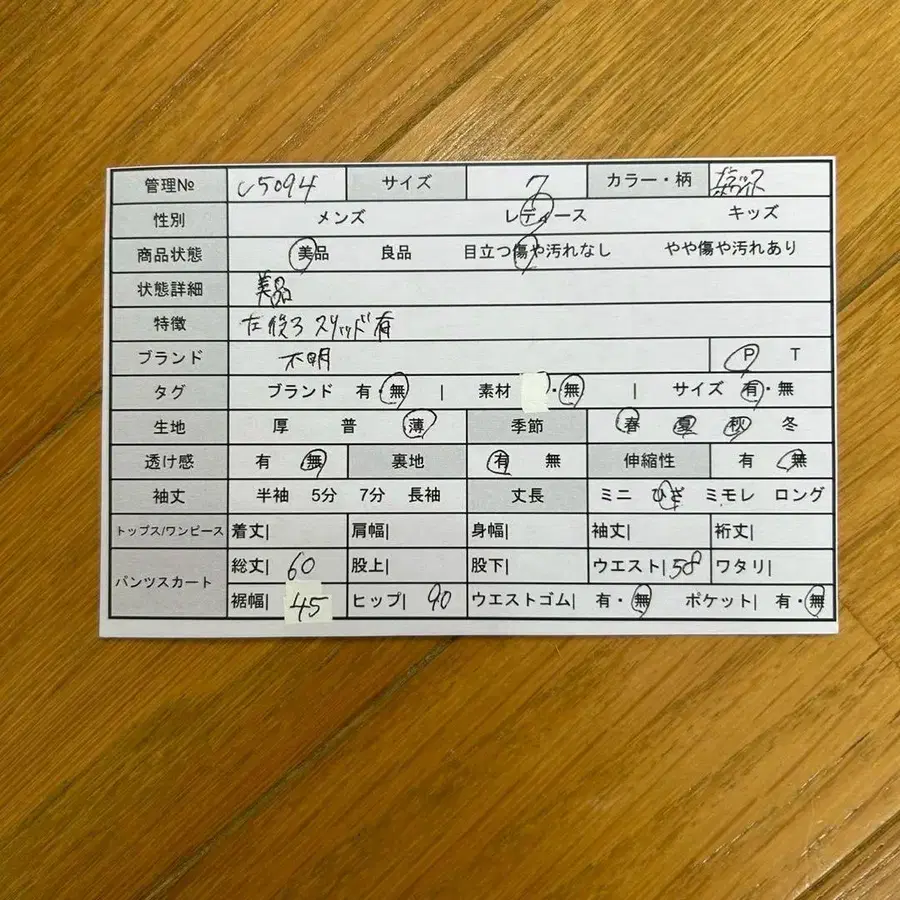 管理№ C5094 サイズ 7 カラー・柄 ブラック ホワイト
性別 メンズ レディース キッズ
商品状態 美品 良品 目立つ傷や汚れなし やや傷や汚れあり
状態詳細 美品
特徴 左後ろ スリッド有
ブランド 不明 P T
タグ ブランド 有・無 | 素材 ・無 | サイズ 有・無
生地 厚 普 薄 季節 春 夏 秋 冬
透け感 有 無 裏地 有 無 伸縮性 有 無
袖丈 半袖 5分 7分 長袖 丈長 ミニ ひざ ミモレ ロング
トップス/ワンピース 着丈| 肩幅| 身幅| 袖丈| 裄丈|
パンツスカート 総丈| 60 股上| 股下| ウエスト| 58 ワタリ|
裾幅| 45 ヒップ| 90 ウエストゴム| 有・無 ポケット| 有・無